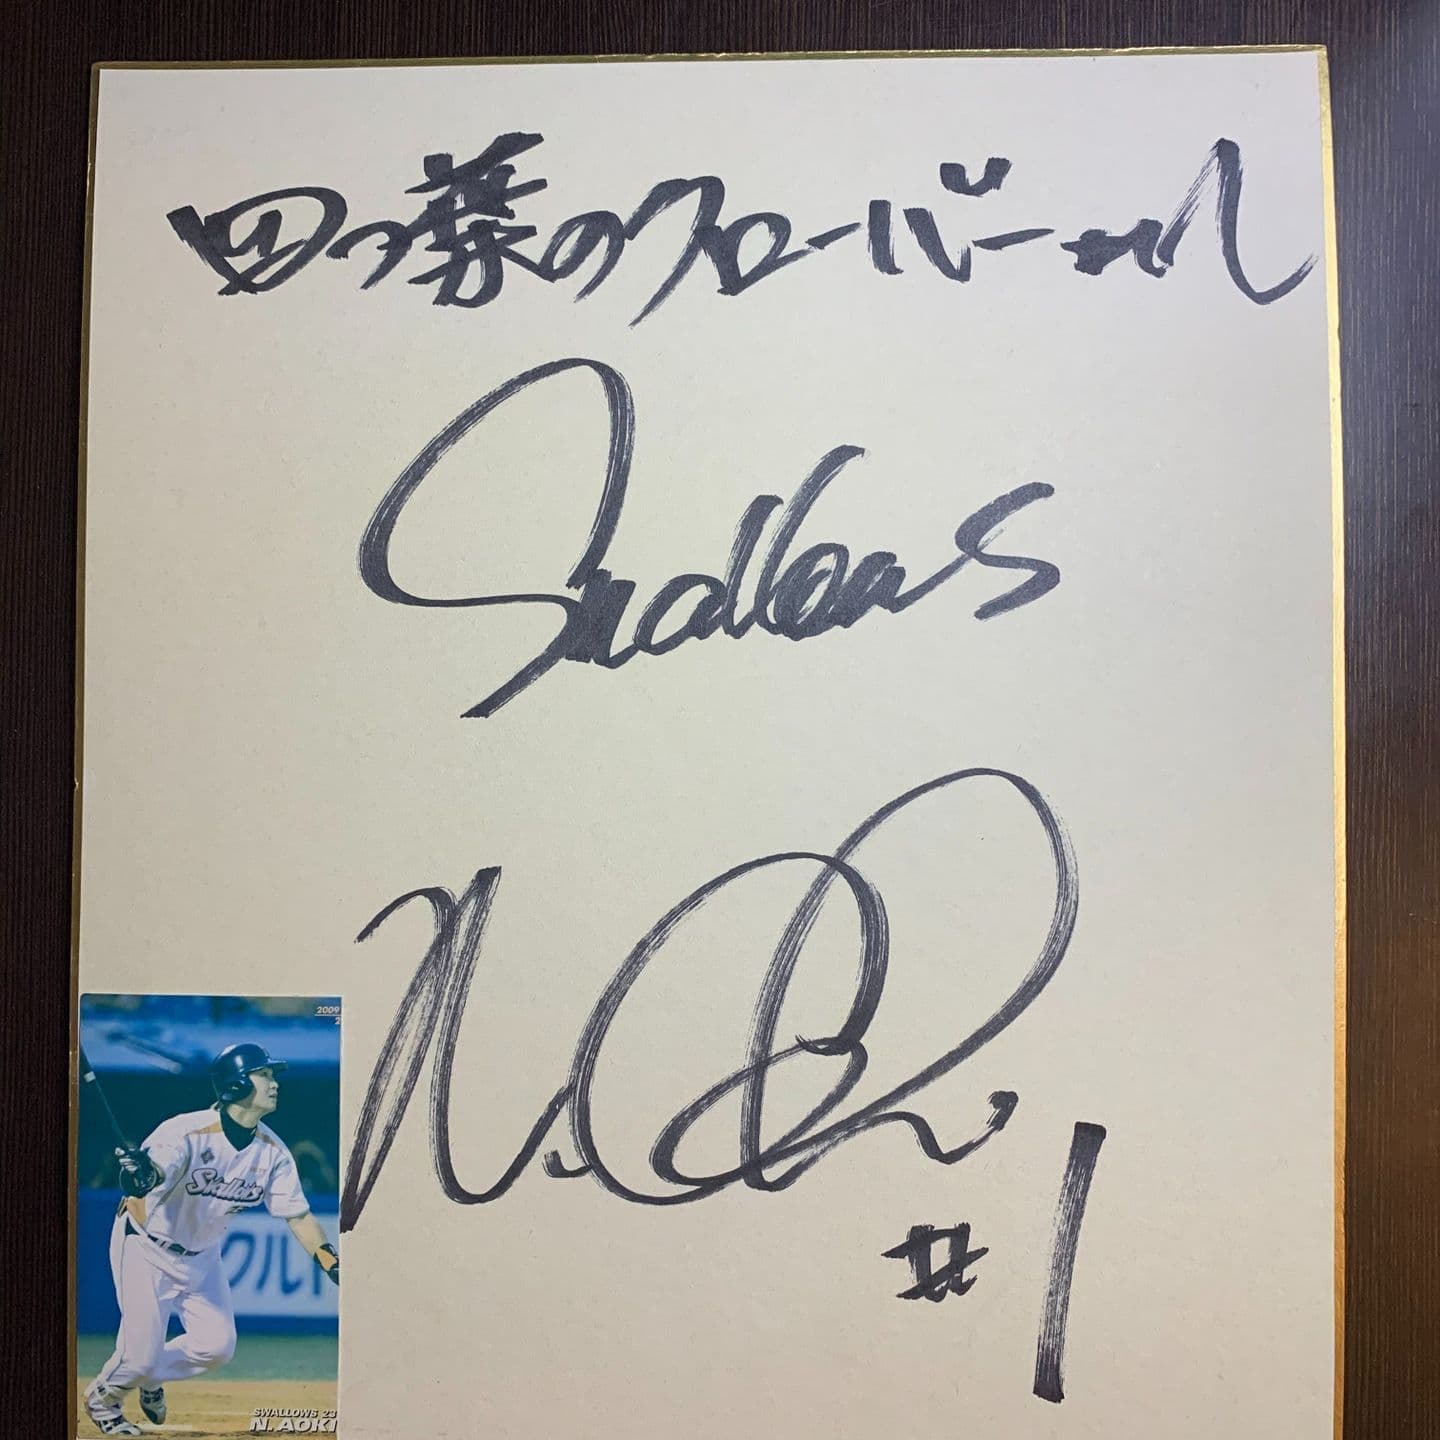 四つ葉のクローバーさん江
Swallows
#1
2009
2
Swallows
クルト
SWALLOWS 23
N. AOKI